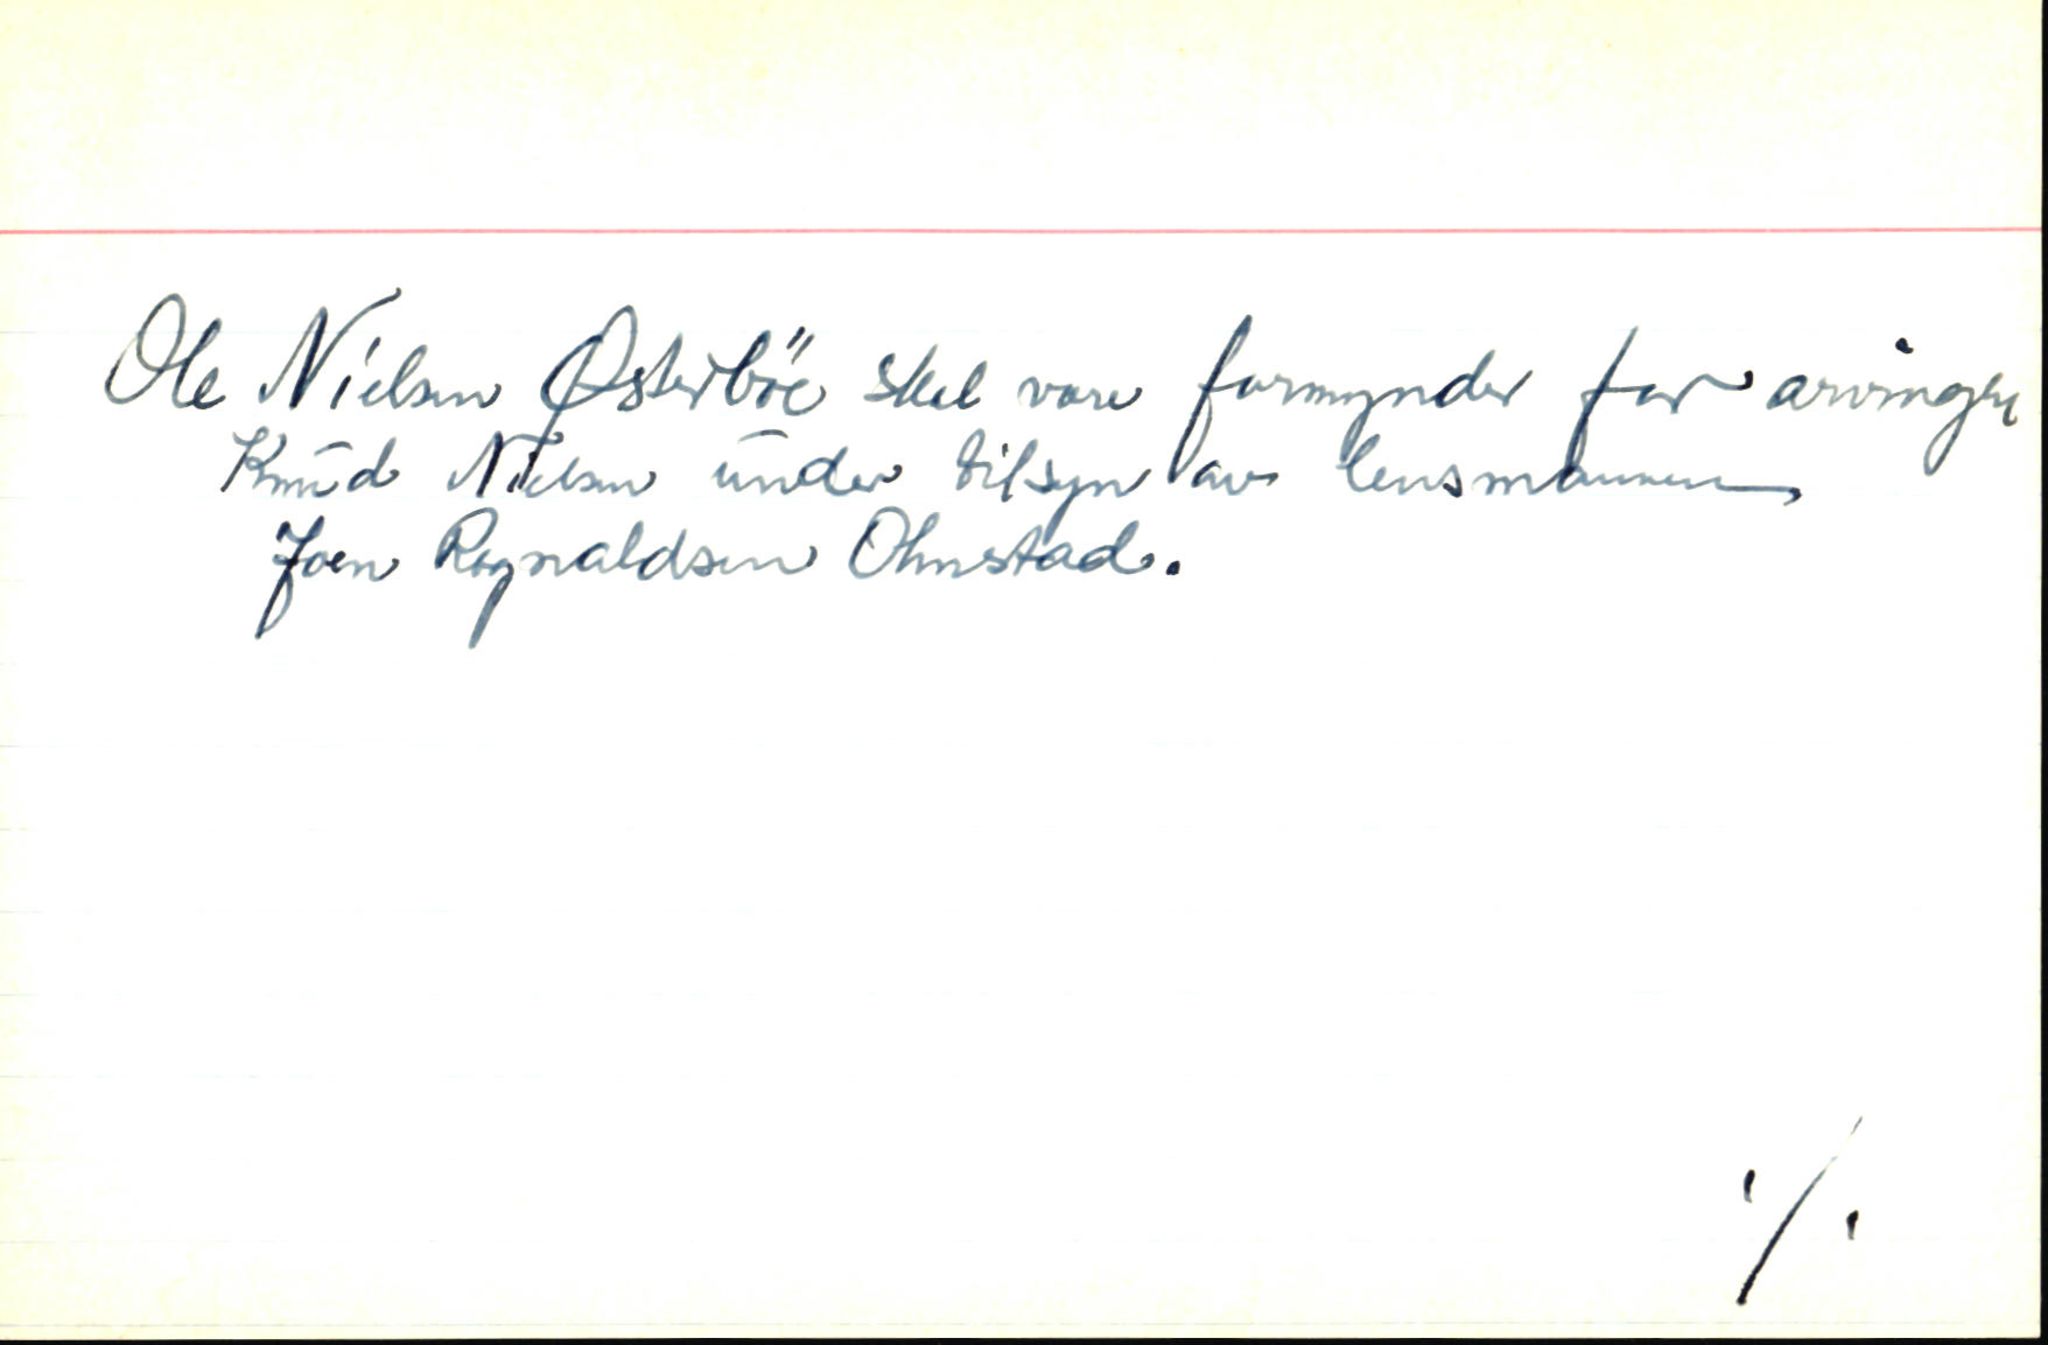 Ole Nielsen Østerböe skal være formynder for arvingen
Knud Nielsen under tilsyn av lensmannen
Joen Rognaldsen Ohnstad.
./.